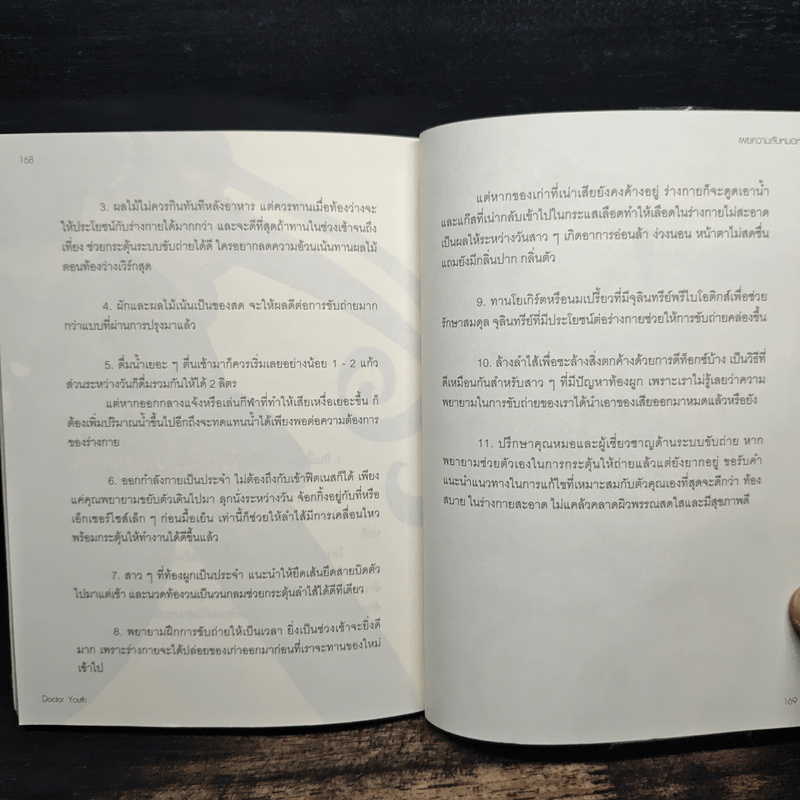 168
3. ผลไม้ไม่ควรกินทันทีหลังอาหาร แต่ควรทานเมื่อท้องว่างจะ
ให้ประโยชน์กับร่างกายได้มากกว่า และจะดีที่สุดถ้าทานในช่วงเช้าจนถึง
เที่ยง ช่วยกระตุ้นระบบขับถ่ายได้ดี ใครอยากลดความอ้วนเน้นทานผลไม้
ตอนท้องว่างเวิร์กสุด
4. ผักและผลไม้เน้นเป็นของสด จะให้ผลดีต่อการขับถ่ายมาก
กว่าแบบที่ผ่านการปรุงมาแล้ว
5. ดื่มน้ำเยอะ ๆ ตื่นเช้ามาก็ควรเริ่มเลยอย่างน้อย 1 - 2 แก้ว
ส่วนระหว่างวันก็ดื่มรวมกันให้ได้ 2 ลิตร
แต่หากออกกลางแจ้งหรือเล่นกีฬาที่ทำให้เสียเหงื่อเยอะขึ้น ก็
ต้องเพิ่มปริมาณน้ำขึ้นไปอีกถึงจะทดแทนน้ำได้เพียงพอต่อความต้องการ
ของร่างกาย
6. ออกกำลังกายเป็นประจำ ไม่ต้องถึงกับเข้าฟิตเนสก็ได้ เพียง
แค่คุณพยายามขยับตัวเดินไปมา ลุกนั่งระหว่างวัน จ้อกกิ้งอยู่กับที่หรือ
เอ็กเซอร์ไซส์เล็ก ๆ ก่อนมื้อเย็น เท่านี้ก็ช่วยให้ลำไส้มีการเคลื่อนไหว
พร้อมกระตุ้นให้ทำงานได้ดีขึ้นแล้ว
7. สาว ๆ ที่ท้องผูกเป็นประจำ แนะนำให้ยืดเส้นยืดสายบิดตัว
ไปมาแต่เช้า และนวดท้องวนเป็นวนกลมช่วยกระตุ้นลำไส้ได้ดีทีเดียว
8. พยายามฝึกการขับถ่ายให้เป็นเวลา ยิ่งเป็นช่วงเช้าจะยิ่งดี
มาก เพราะร่างกายจะได้ปล่อยของเก่าออกมาก่อนที่เราจะทานของใหม่
เข้าไป
Doctor Youth
เผยความลับหมอ
แต่หากของเก่าที่เน่าเสียยังคงค้างอยู่ ร่างกายก็จะดูดเอาน้ำ
และแก๊สที่เน่ากลับเข้าไปในกระแสเลือดทำให้เลือดในร่างกายไม่สะอาด
เป็นผลให้ระหว่างวันสาว ๆ เกิดอาการอ่อนล้า ง่วงนอน หน้าตาไม่สดชื่น
แถมยังมีกลิ่นปาก กลิ่นตัว
9. ทานโยเกิร์ตหรือนมเปรี้ยวที่มีจุลินทรีย์พรีไบโอติกส์เพื่อช่วย
รักษาสมดุล จุลินทรีย์ที่มีประโยชน์ต่อร่างกายช่วยให้การขับถ่ายคล่องขึ้น
10. ล้างลำไส้เพื่อชะล้างสิ่งตกค้างด้วยการดีท็อกซ์บ้าง เป็นวิธีที่
ดีเหมือนกันสำหรับสาว ๆ ที่มีปัญหาท้องผูก เพราะเราไม่รู้เลยว่าความ
พยายามในการขับถ่ายของเราได้นำเอาของเสียออกมาหมดแล้วหรือยัง
11. ปรึกษาคุณหมอและผู้เชี่ยวชาญด้านระบบขับถ่าย หาก
พยายามช่วยตัวเองในการกระตุ้นให้ถ่ายแล้วแต่ยังยากอยู่ ขอรับคำ
แนะนำแนวทางในการแก้ไขที่เหมาะสมกับตัวคุณเองที่สุดจะดีกว่า ท้อง
สบาย ในร่างกายสะอาด ไม่แคล้วคลาดผิวพรรณสดใสและมีสุขภาพดี
169